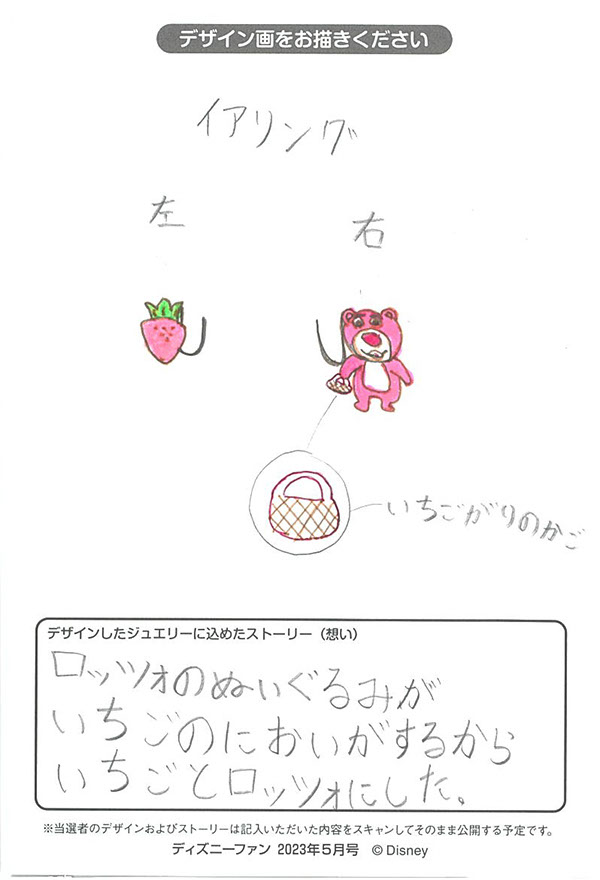 デザイン画をお描きください
イアリング
左
右
いちごがりのかご
デザインしたジュエリーに込めたストーリー（想い）
ロッツォのぬいぐるみが
いちごのにおいがするから
いちごとロッツォにした。
※当選者のデザインおよびストーリーは記入いただいた内容をスキャンしてそのまま公開する予定です。
ディズニーファン 2023年5月号 ©Disney